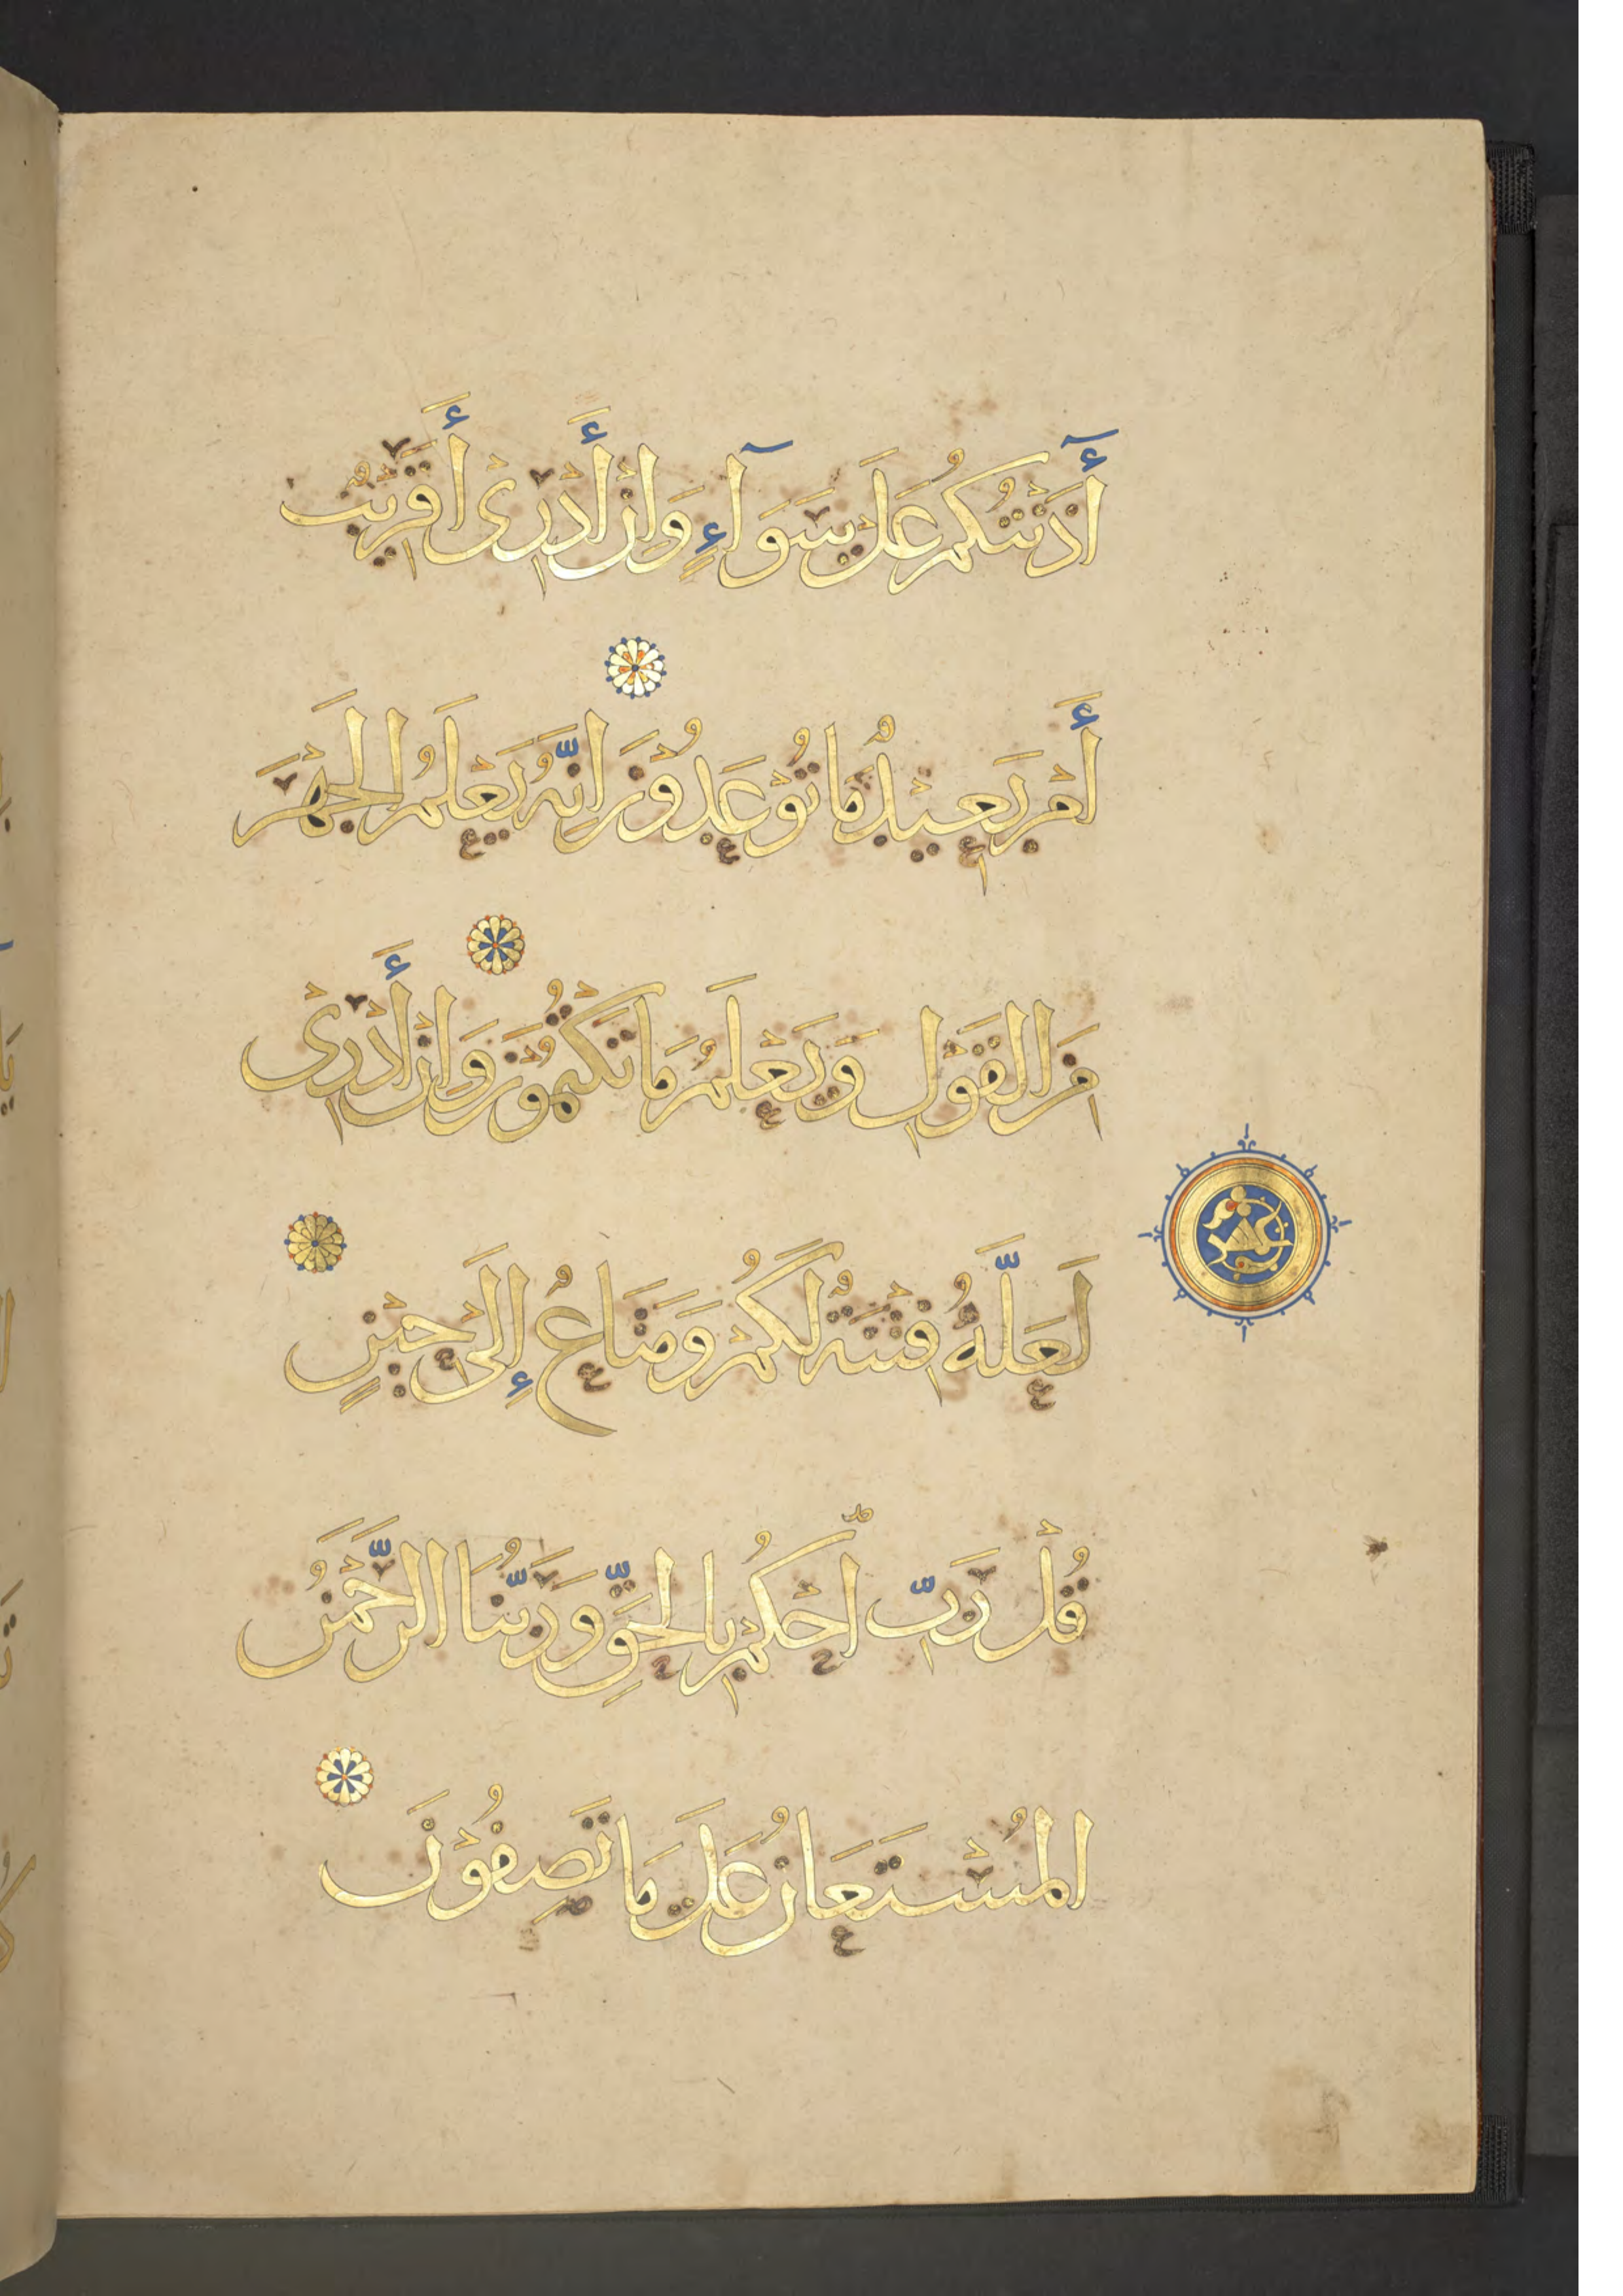 أٓذَنْتُكُمْ عَلَى سَوَآءٍ وَإِنْ أَدْرِىْ أَقَرِيْبٌ
أَمْ بَعِيْدٌ مَا تُوْعَدُوْنَ إِنَّهُ يَعْلَمُ الْجَهْرَ
مِنَ الْقَوْلِ وَيَعْلَمُ مَا تَكْتُمُوْنَ وَإِنْ أَدْرِىْ
لَعَلَّهُ فِتْنَةٌ لَكُمْ وَمَتَاعٌ إِلَىْ حِيْنٍ
عشر
قُلْ رَبِّ احْكُمْ بِالْحَقِّ وَرَبُّنَا الرَّحْمَنُ
الْمُسْتَعَانُ عَلَى مَا تَصِفُوْنَ